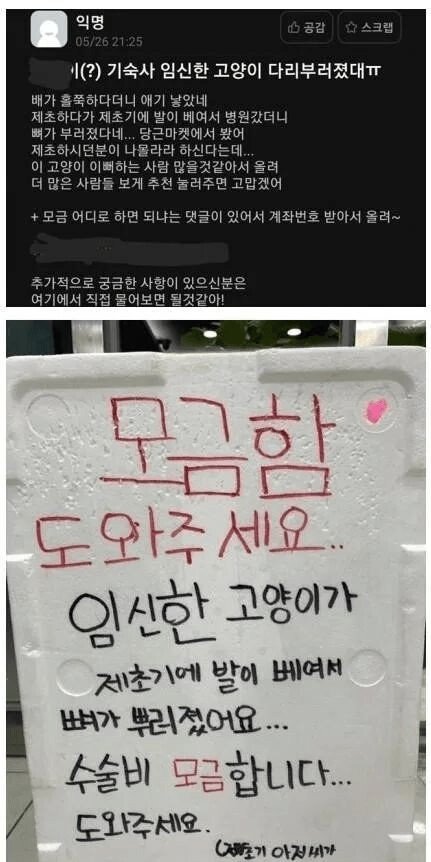 익명
05/26 21:25
공감
스크랩
이(?) 기숙사 임신한 고양이 다리부러졌대ㅠ
배가 홀쭉하다더니 애기 낳았네
제초하다가 제초기에 발이 베여서 병원갔더니
뼈가 부러졌다네... 당근마켓에서 봤어
제초하시던분이 나몰라라 하신다는데...
이 고양이 이뻐하는 사람 많을것같아서 올려
더 많은 사람들 보게 추천 눌러주면 고맙겠어
+ 모금 어디로 하면 되냐는 댓글이 있어서 계좌번호 받아서 올려~
추가적으로 궁금한 사항이 있으신분은
여기에서 직접 물어보면 될것같아!
모금함
도와주세요..
임신한 고양이가
제초기에 발이 베여서
뼈가 뿌러졌어요...
수술비 모금합니다...
도와주세요.
초기 아저씨가